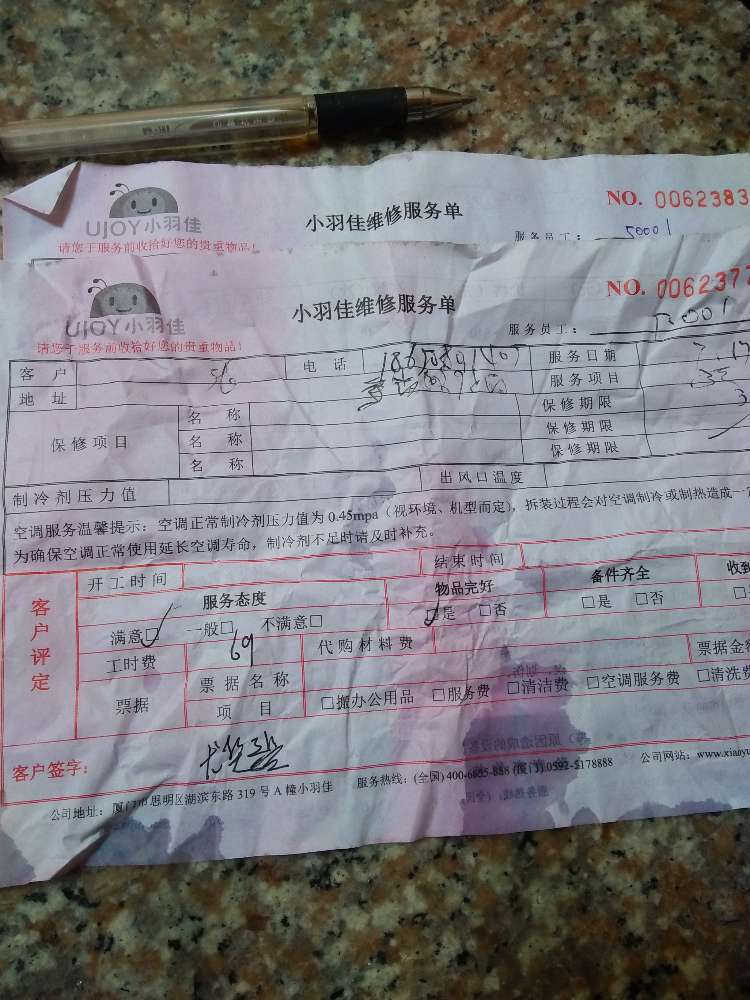 UJOY小羽佳
小羽佳维修服务单
NO. 0062383
请您于服务前收拾好您的贵重物品!
服务员工: 50001
UJOY小羽佳
小羽佳维修服务单
NO. 0062377
请您于服务前收拾好您的贵重物品!
服务员工:
客户 电话 服务日期
地址 服务项目
保修项目 名称 保修期限 3
名称 保修期限
名称 保修期限
制冷剂压力值 出风口温度
空调服务温馨提示:空调正常制冷剂压力值为 0.45mpa(视环境、机型而定),拆装过程会对空调制冷或制热造成一
为确保空调正常使用延长空调寿命,制冷剂不足时请及时补充。
客户评定 开工时间 结束时间
服务态度 物品完好 备件齐全 收到
满意□ 一般□ 不满意□ □是 □否 □是 □否
工时费 69 代购材料费
票据 票据名称 票据金额
项目 □搬办公用品 □服务费 □清洁费 □空调服务费 □清洗费
客户签字:
公司地址:厦门市思明区湖滨东路 319 号 A 幢小羽佳 服务热线:(全国) 400-6885-888 (厦门) 0592-5178888 公司网站:www.xiaoyu